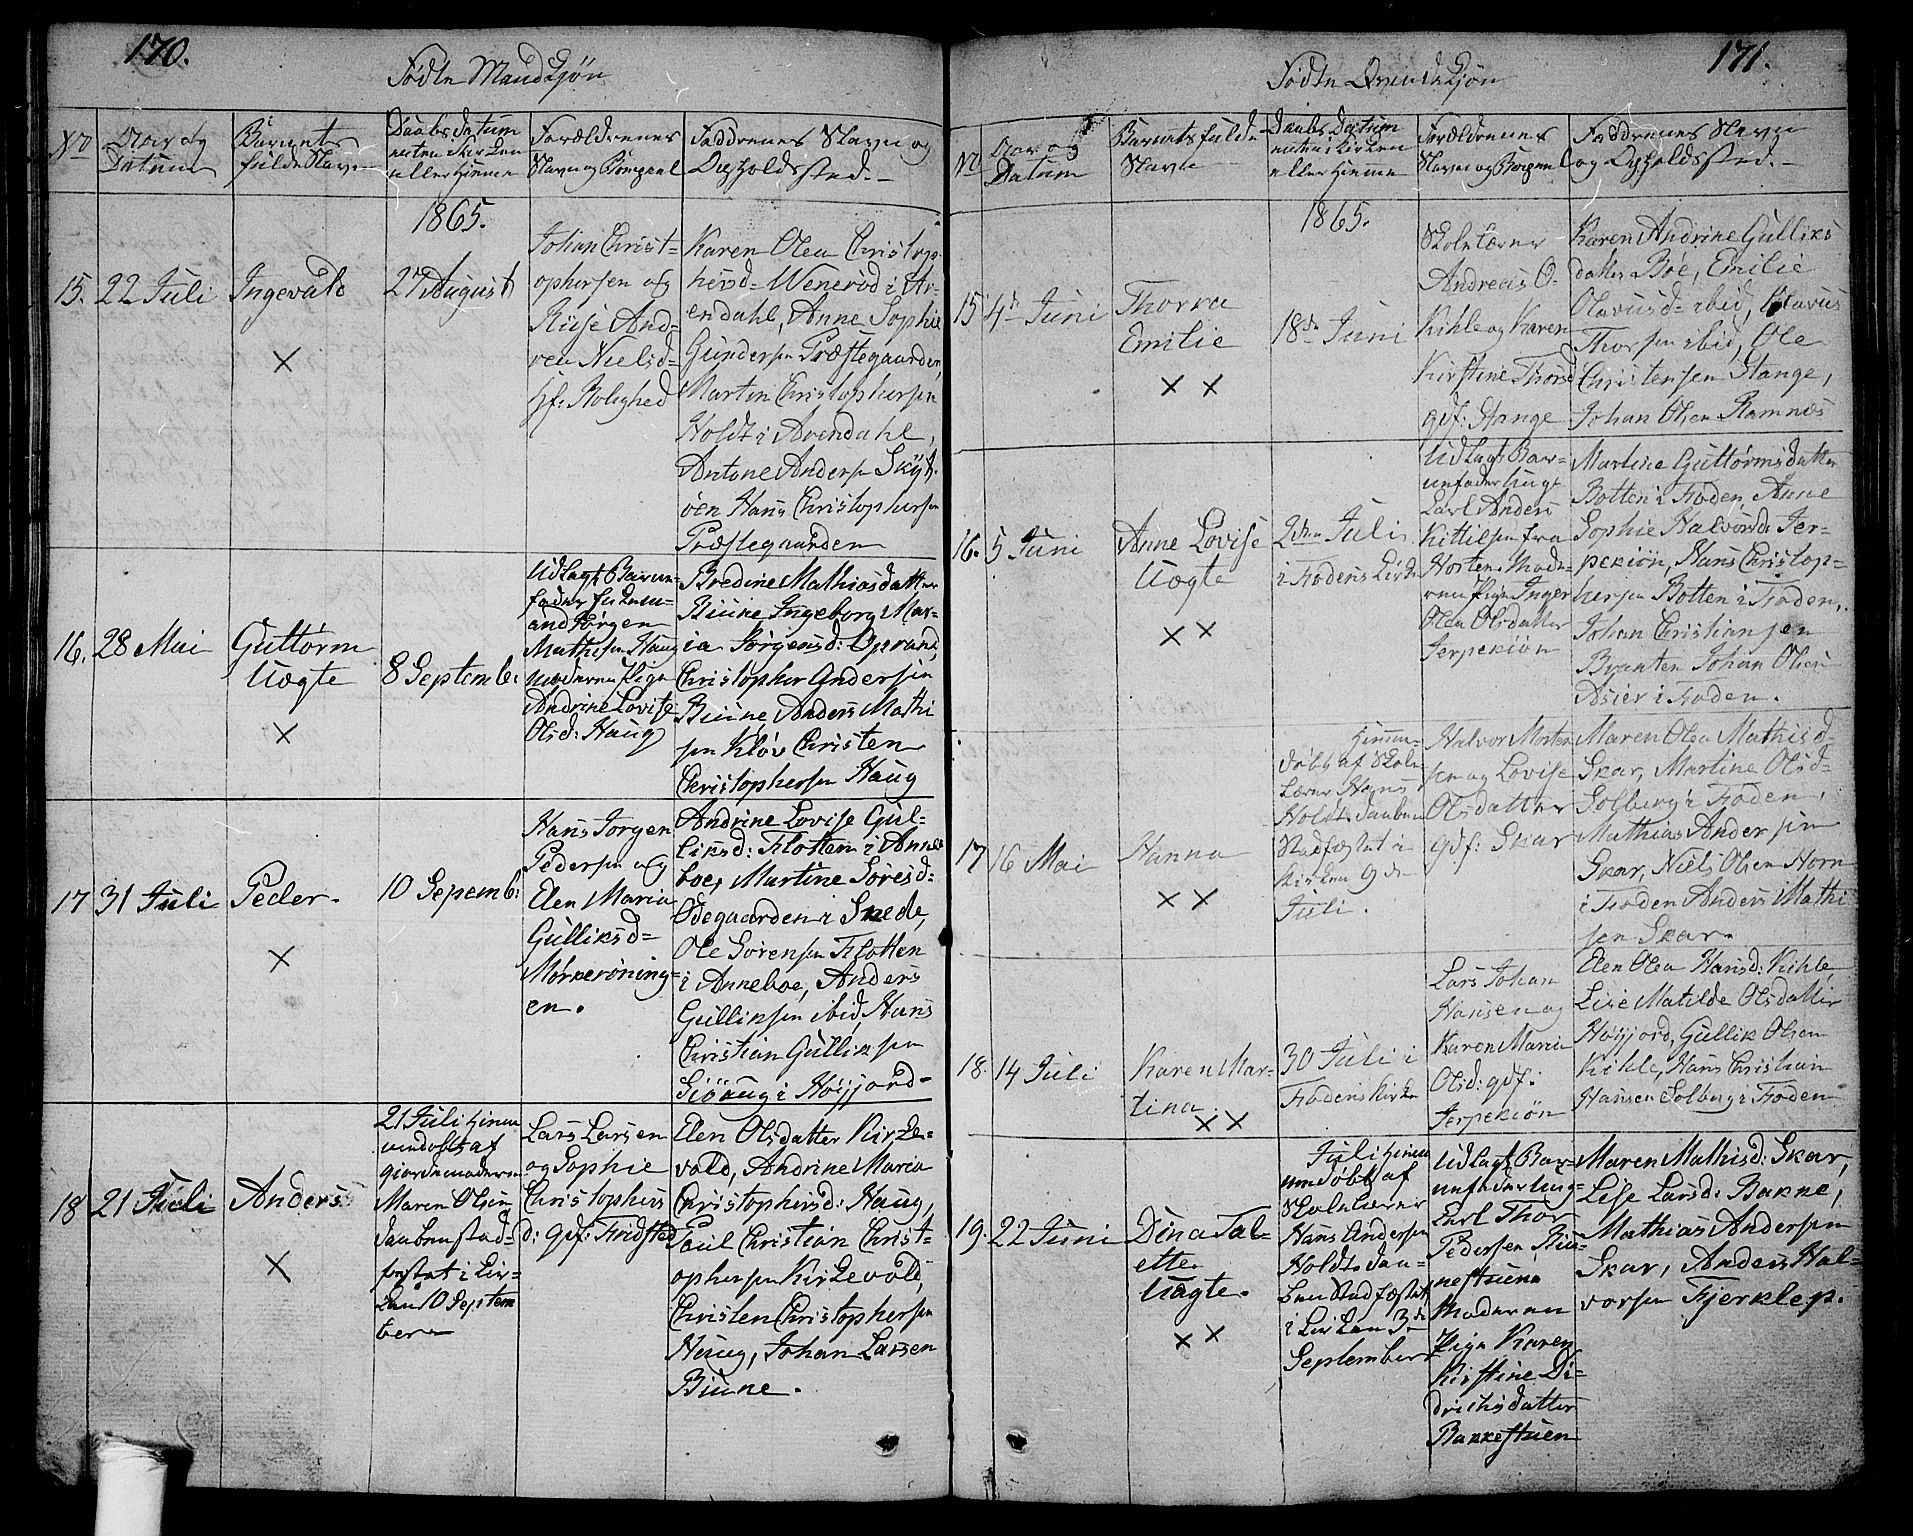 170.
Fødte Mandkjøn
No
Aar og
Datum
Barnets
fulde Navn
Daabs datum
enten i Kirken
eller hjemme
Forældrenes
Navn og Bopæl
Faddrenes Navn og
Opholdssted.
1865.
15.
22 Juli
Ingevald
×
27 August
Johan Christ-
ophersen og
Andrea
Nielsd-
Karen Olea Christop-
hersd- Wenerød i Ar-
endahl, Anne Sophie
Gundersen Præstegaarden,
Martin Christophersen
Holdt i Arendahl,
Antone Andersen Skøt-
øen Hans Christophersen
Præstegaarden
16.
28 Mai
Guttørm
Uægte
×
8 Septemb:
Udlagt Barne-
fader
and Jørgen
Mathisen Haug
moderen Pige
Andrine Lovise
Olsd: Haug
Bredine Mathiasdatter
Biune Ingeborg Mar-
ia Jørgensd: Oprand,
Christopher Andersen
Biune Anders Mathi
sen Kløv Christen
Christophersen Haug
17
31 Juli
Peder
×
10 Sepemb:
Hans Jørgen
Pedersen og
Elen Maria
Gulliksd-
Mørkerøning-
en.
Andrine Lovise Gul-
liksd: Flotten i Anne
boe, Martine Soresd-
Ødegaarden i Snede,
Ole Sørensen Flotten
i Anneboe, Anders
Gulliksen ibid, Hans
Christian Gulliksen
i Høyjord-
18
21 Juli
Anders
×
21 Juli hjem
mendøbt af
giordemoderen
Maren Olsen
Daaben stad-
fæstat i Kir-
ken 10 Septem
ber
Lars Larsen
og Sophie
Christophers
d: gdf: Fridsted
Elen Olsdatter Kirke-
vold, Andrine Maria
Christophersd: Haug,
Paul Christian Christ-
ophersen Kirkevold,
Christen Christophersen
Haug, Johan Larsen
Biune.
171.
Fødte Qvindekjøn
No
Aar og
Datum
Barnets fulde
Navn
Daabs Datum
enten i Kirken
eller hjemme
Forældrenes
Navn og Bopæl
Faddrenes Navn
og Opholdssted.
1865.
15
4de Juni
Thorra
Emilie
× ×
18de Juni
Skolelærer
Andreas O-
Kihle og Karen
Kirstine Thorsd
gdf: Stange
Karen Andrine Gulliks
datter Bøe, Emilie
Olavusd- ibid, Olavus
Thorsen ibid, Ole
Christensen Stange,
Johan Olsen Ramnæs
16.
5 Juni
Anne Lovise
Uægte
× ×
2den Juli
i Fodens Kirke
Udlagt Bar-
nefader
Carl Anders
Kittilsen fra
Horten Mode-
ren Pige Inger
Olea Olsdatter
Jerpekiøn
Martine Guttormsdatter
Botten i Foden, Anne
Sophie Halvorsd: Jer-
pekiøn, Hans Christop-
hersen Botten i Foden,
Johan Christiansen
Johan Olsen
i Foden.
17
16 Mai
Hanna
× ×
hjemme-
døbt af Skole
lærer Hans
Holdt, Daaben
Stadfæstet i
Kirken 9de
Juli.
Halvor Morten
sen og Lovise
Olsdatter
gdf: Skar
Maren Olea Mathisd-
Skar, Martine Olsd-
Solberg i Foden,
Mathias Andersen
Skar, Niels Olsen Horn
i Foden Anders Mathi
sen Skar
18.
14 Juli
Karen Mar-
tina.
× ×
30 Juli i
Fodens Kirke
Lars Johan
Hansen og
Karen Maria
Olsd: gdf:
Jerpekiøn
Elen Olea Hansd: Kihle
Lise Matilde Olsdatter
Høyjord, Gullik Olsen
Kihle, Hans Christian
Hansen Solberg i Foden
19.
22 Juni
Dina Tal-
ette
Uægte.
× ×
Juli hjem
medøbt af
Skolelærer
Hans Andersen
Holdt, Daa-
ben Stadfæstet
i Kirken 3de
September
Udlagt Bar-
nefader
Carl Thor
Pedersen
Moderen
Pige Karen
Kirstine Di-
drichsdatter
Bakkestuen
Maren Mathisd: Skar,
Lise Larsd: Bakne,
Mathias Andersen
Skar, Anders Hal-
vorsen Fjerklep.